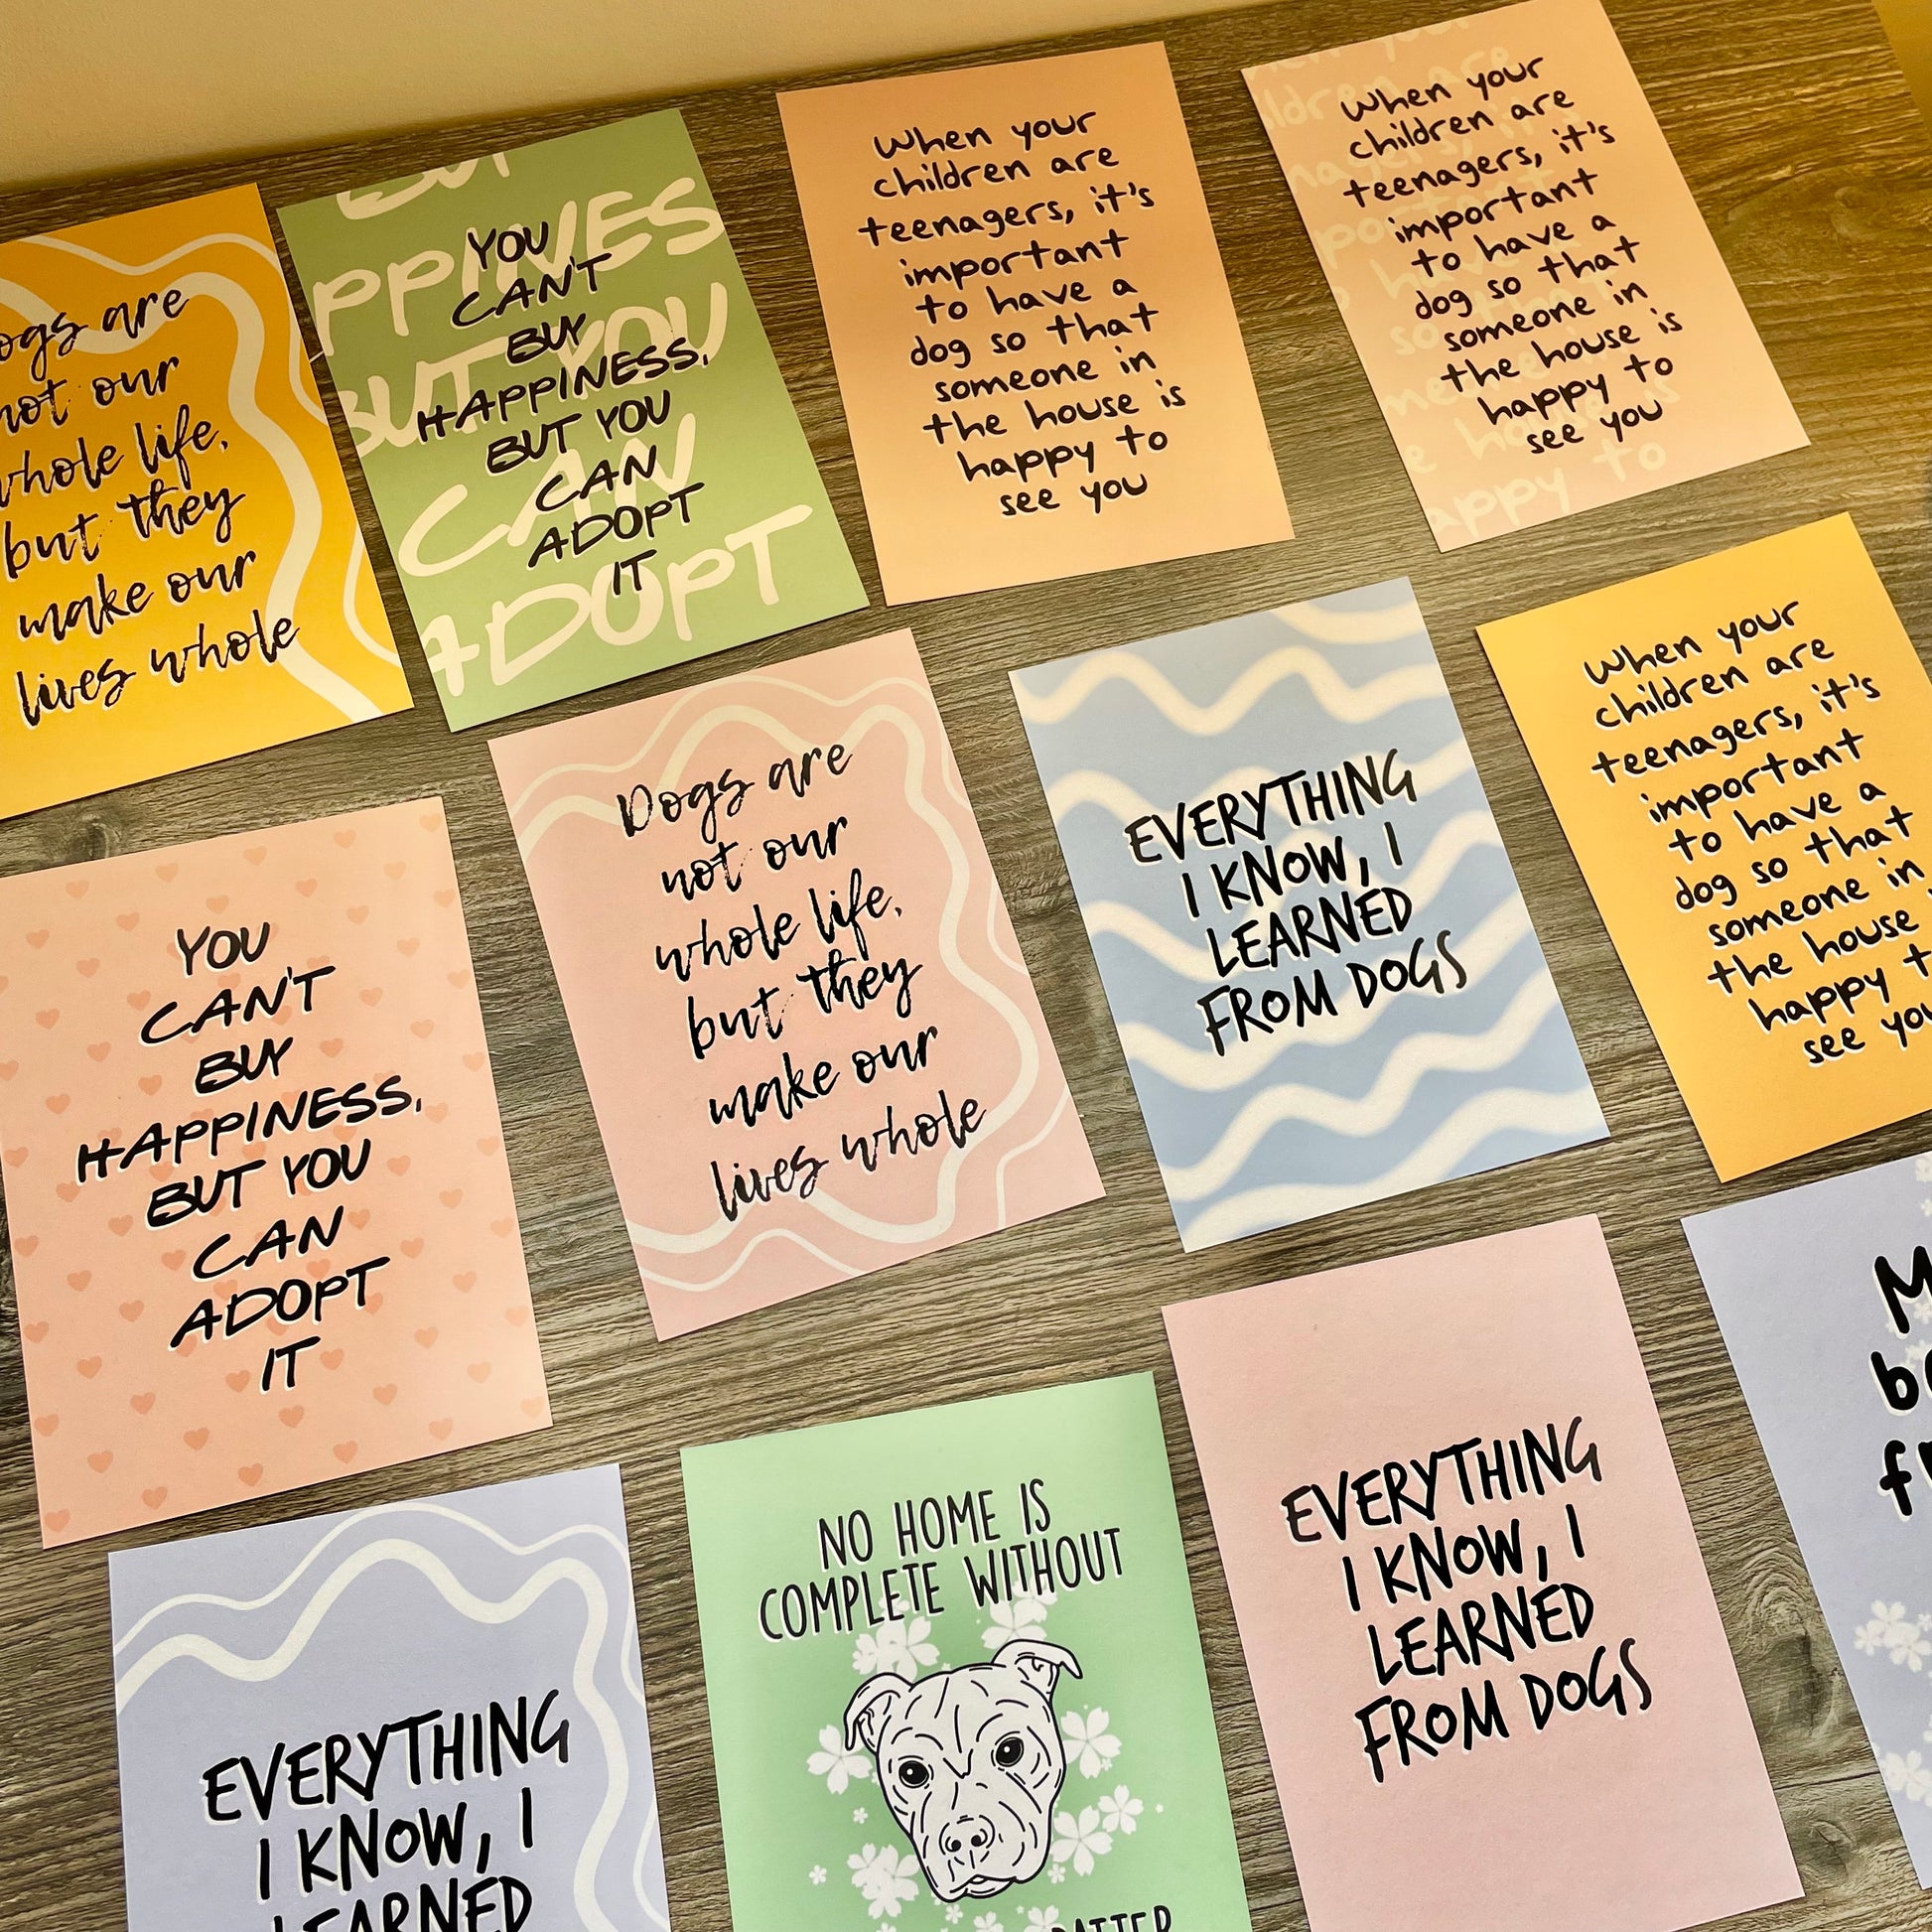 Dogs are
not our
whole life,
but they
make our
lives whole
BUT
PPINES
BUT YOU
CAN
ADOPT
YOU
CAN'T
BUY
HAPPINESS,
BUT YOU
CAN
ADOPT
IT
When your
children are
teenagers, it's
important
to have a
dog so that
someone in
the house is
happy to
see you
When your
children are
teenagers, it's
important
to have a
dog so that
someone in
the house is
happy to
see you
YOU
CAN'T
BUY
HAPPINESS,
BUT YOU
CAN
ADOPT
IT
Dogs are
not our
whole life,
but they
make our
lives whole
EVERYTHING
I KNOW, I
LEARNED
FROM DOGS
When your
children are
teenagers, it's
important
to have a
dog so that
someone in
the house
happy t
see you
EVERYTHING
I KNOW, I
LEARNED
NO HOME IS
COMPLETE WITHOUT
EVERYTHING
I KNOW, I
LEARNED
FROM DOGS
M
b
f